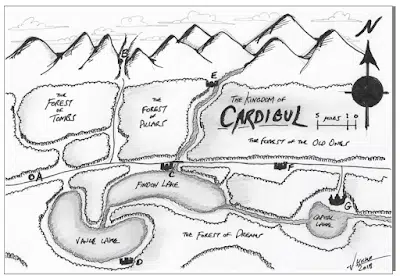 N
B
E
THE
FOREST
OF
TOMBS
THE
FOREST
OF
PILLARS
THE KINGDOM OF
CARDIBUL
5 MILES 10
THE FOREST OF THE OLD ONES
A
C
F
FINDON LAKE
G
CAPITOL
LAKE
VANCE LAKE
THE FOREST OF DREAMS
D
2018